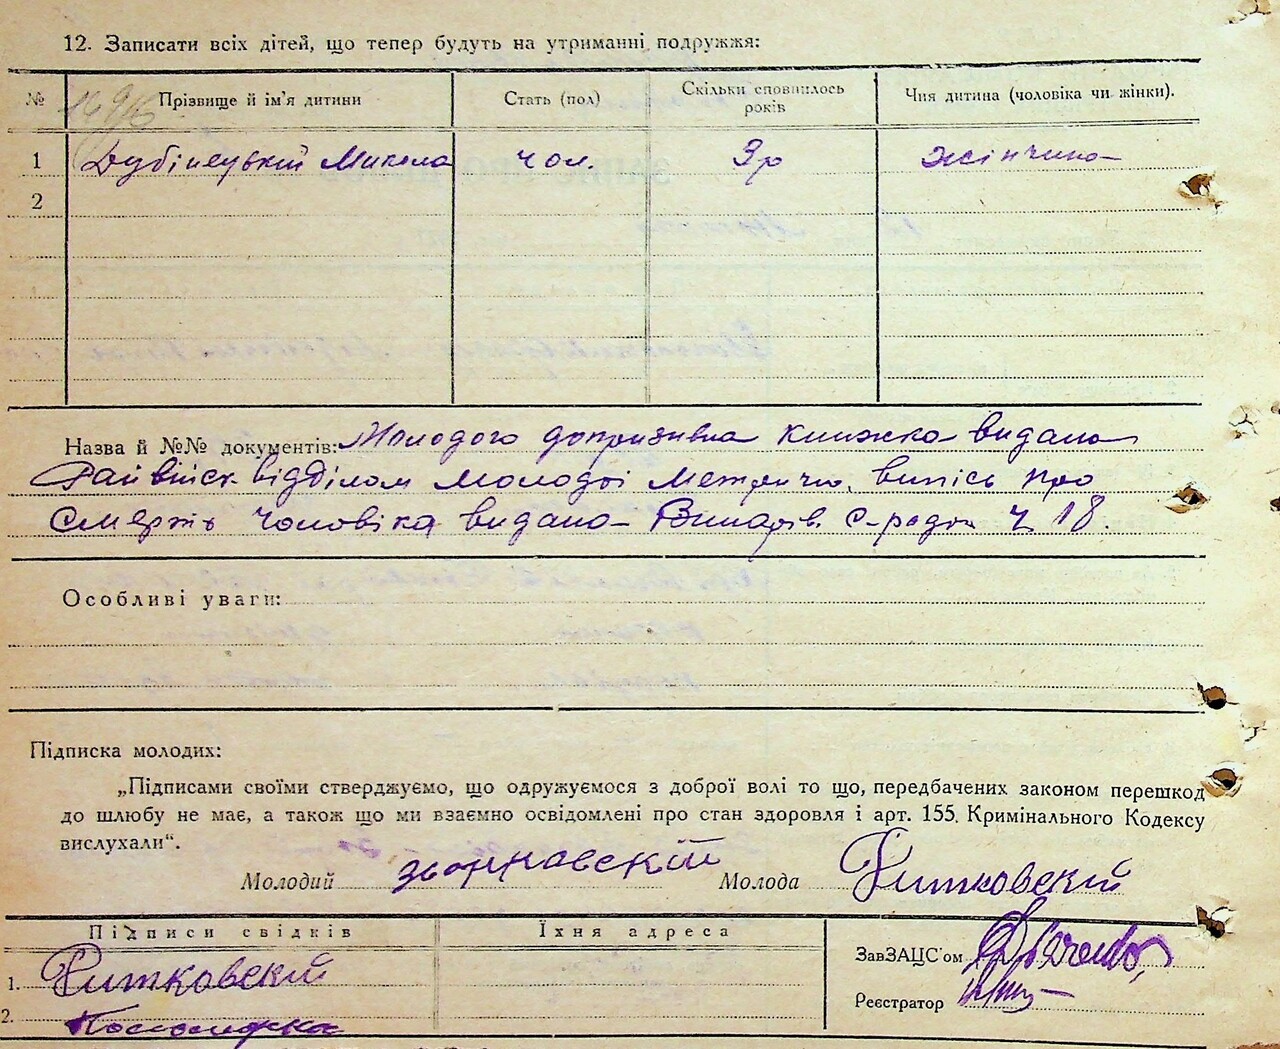 12. Записати всіх дітей, що тепер будуть на утриманні подружжя:
№ Прізвище й ім'я дитини Стать (пол) Скільки сповнилось років Чия дитина (чоловіка чи жінки).
1 Дубінецькій Микола чол. 3р жінчина
2
Назва й №№ документів: Молодого допризивна книжка видана
Райвійск відділом молодої метрична. випісь про
смерть чоловіка видана Винарів. с-радою Ч 18.
Особливі уваги:
Підписка молодих:
„Підписами своїми стверджуємо, що одружуємося з доброї волі то що, передбачених законом перешкод
до шлюбу не має, а також що ми взаємно освідомлені про стан здоровля і арт. 155. Кримінального Кодексу
вислухали“.
Молодий Молода
Підписи свідків Їхня адреса
ЗавЗАЦС'ом
1. Ритковскій
Реєстратор
2.